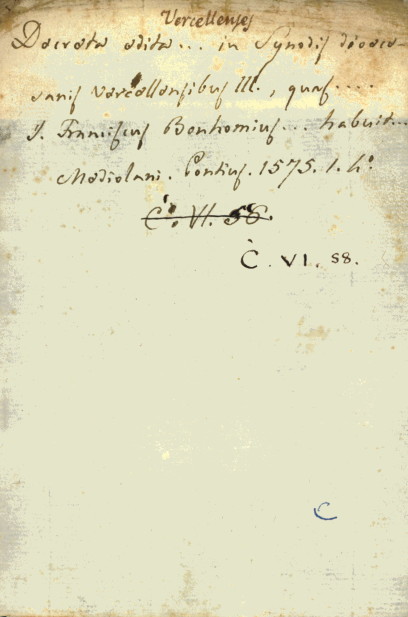 Vercellenses
Decreta edita... in Synodis dioece-
sanis Vercellensibus III., quas....
J. Franciscus Bonhomius... habuit...
Mediolani. Pontius. 1575. 1. 4º.
C. VI. 58.
Ċ. VI. 58.
C